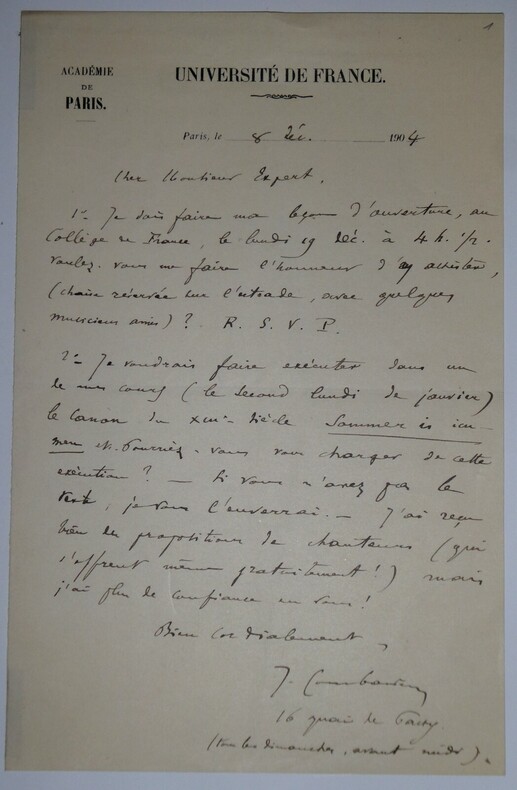 1
ACADÉMIE
DE
PARIS.
UNIVERSITÉ DE FRANCE.
Paris, le 8 Déc. 1904
Cher Monsieur Expert,
1°- Je dois faire ma leçon d'ouverture, au
Collège de France, le lundi 19 Déc. à 4 h. 1/2.
Voulez-vous me faire l'honneur d'y assister,
(chaise réservée sur l'estrade, avec quelques
musiciens amis) ? R. S. V. P.
2°- Je voudrais faire exécuter dans un
de mes cours (le second lundi de janvier)
le Canon du XIIIe siècle Sommer is icu-
men
Pourriez-vous vous charger de cette
exécution ? — Si vous n'avez pas le
texte, je vous l'enverrai. — J'ai reçu
bien des propositions de chanteurs (qui
s'offrent même gratuitement !) mais
j'ai plus de confiance en vous !
Bien cordialement,
J. Combarieu
16 quai de Passy.
(tous les dimanches, avant midi).